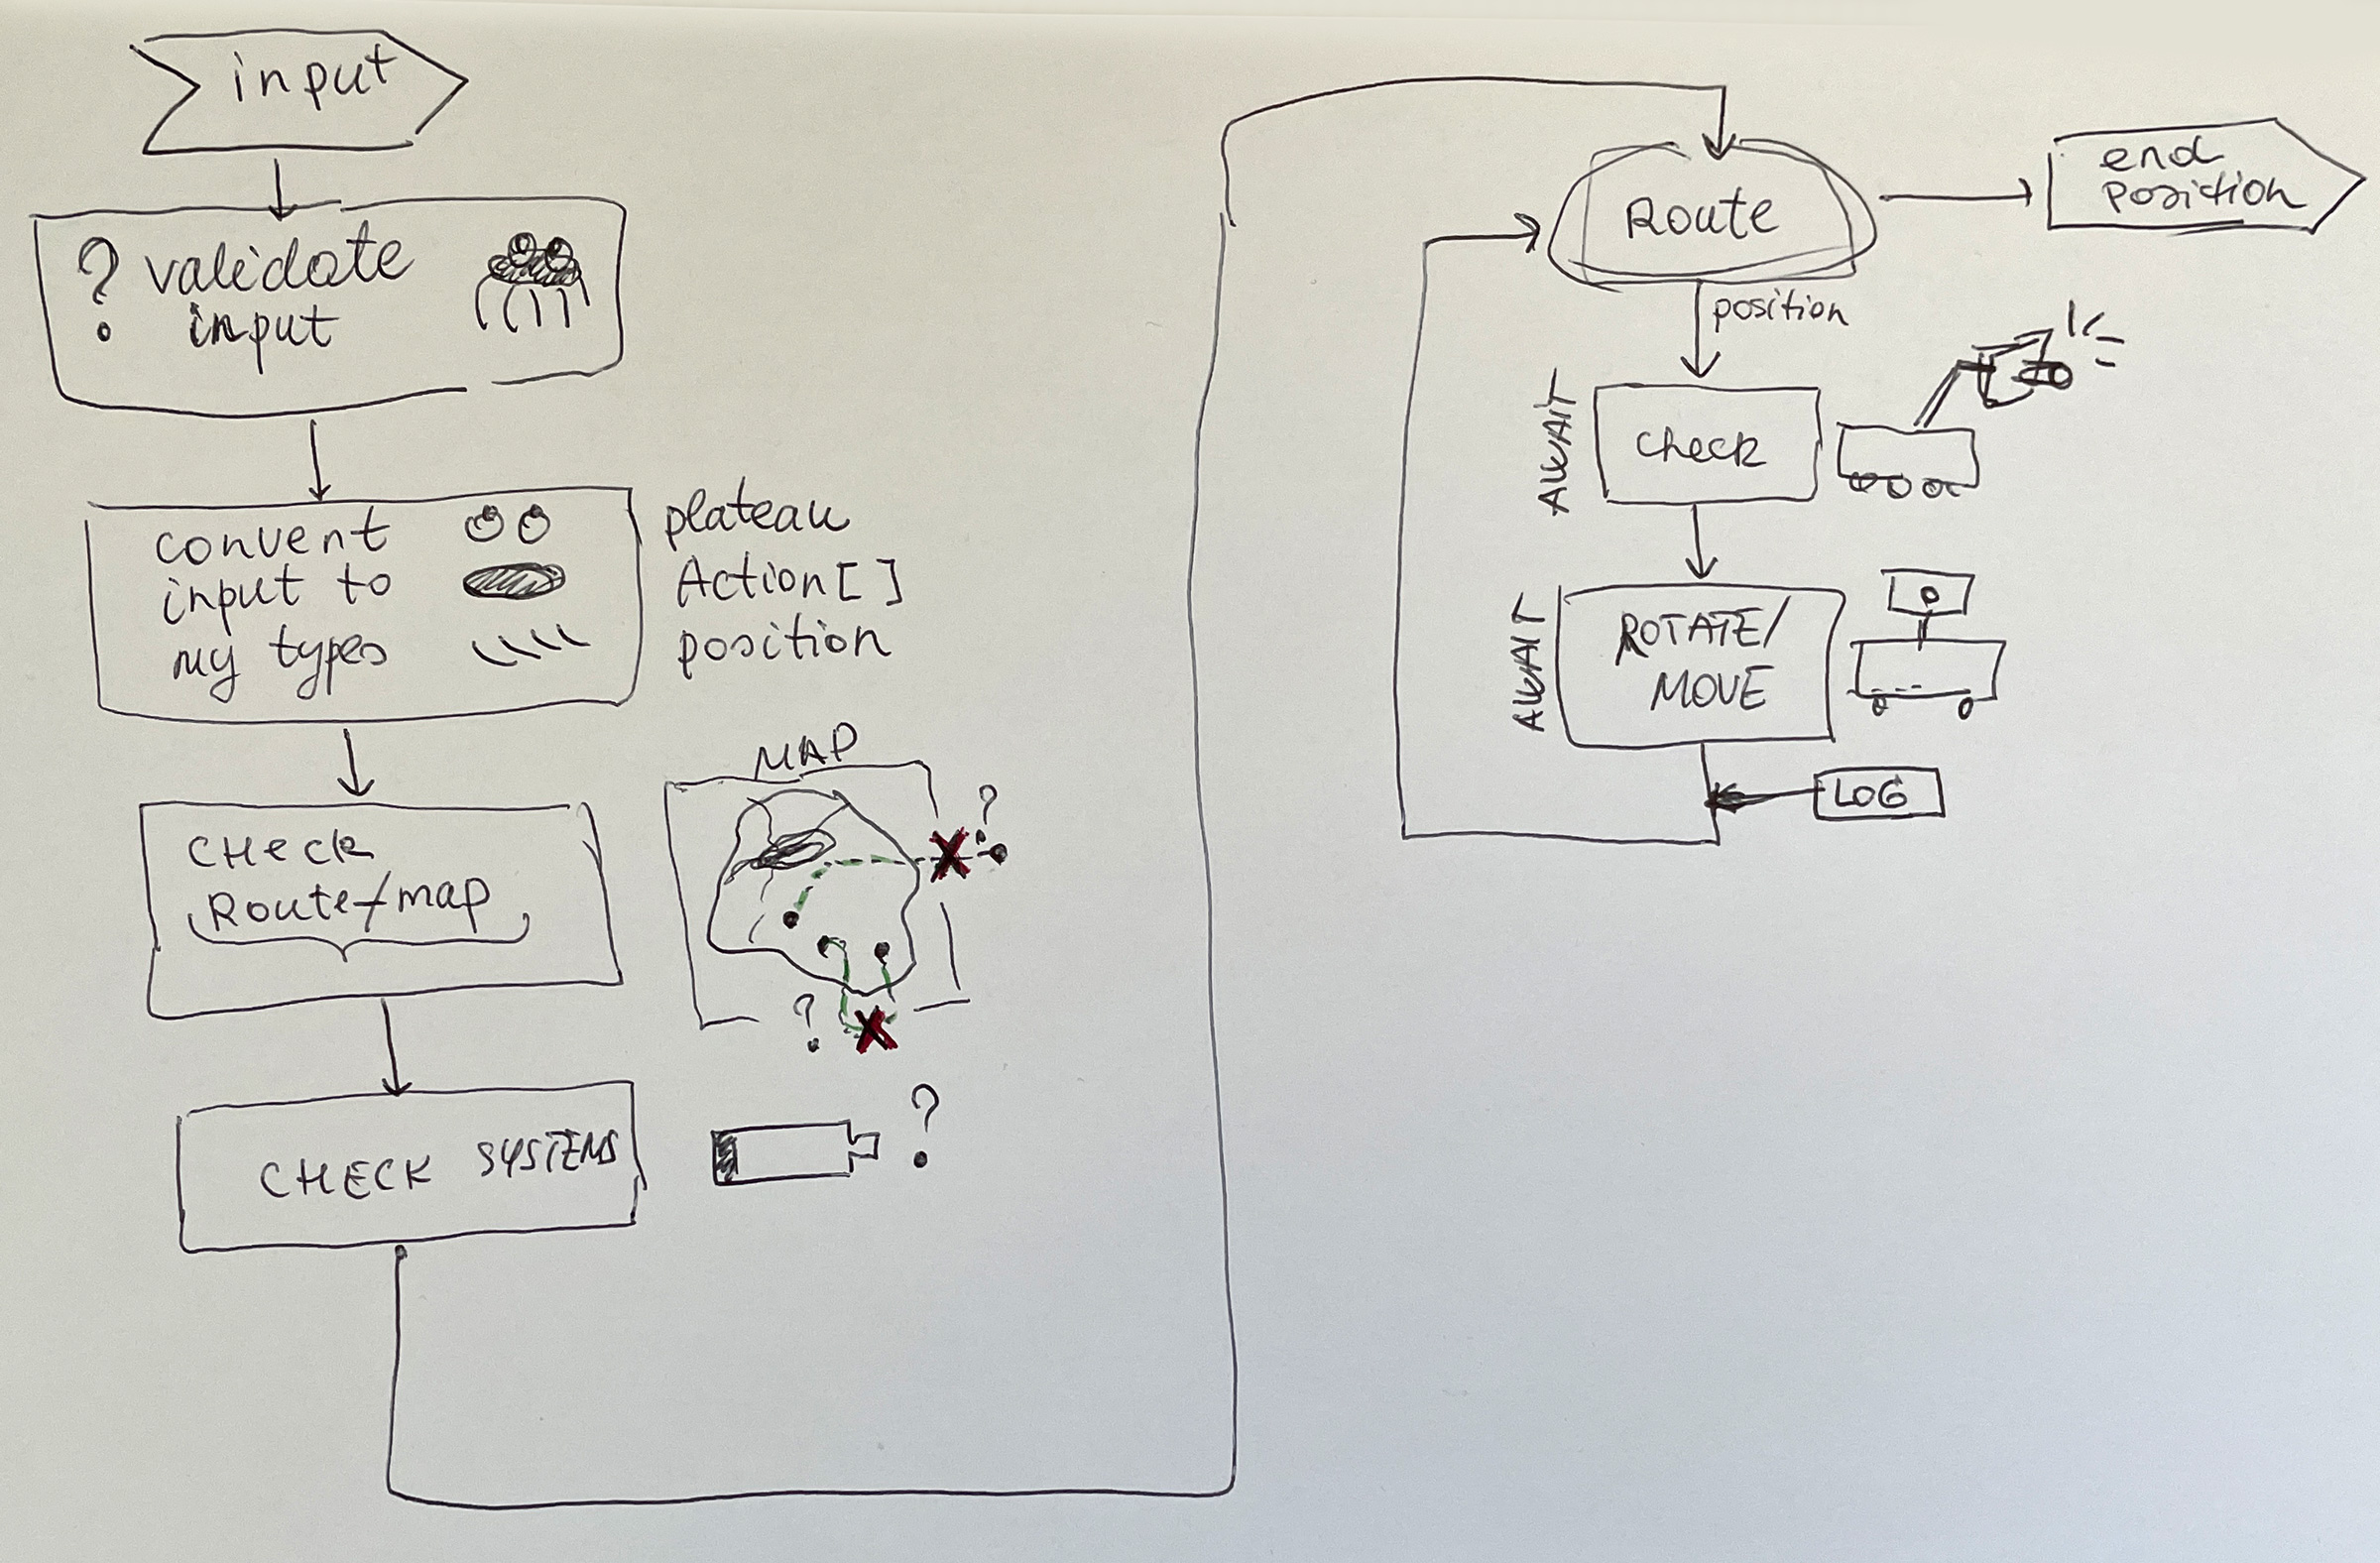 input
? validate
input
convent
input to
my types
plateau
Action[]
position
CHeck
Route/map
MAP
?
?
CHECK SYSTEMS
?
Route
end
position
position
AWAIT
check
AWAIT
ROTATE/
MOVE
LOG